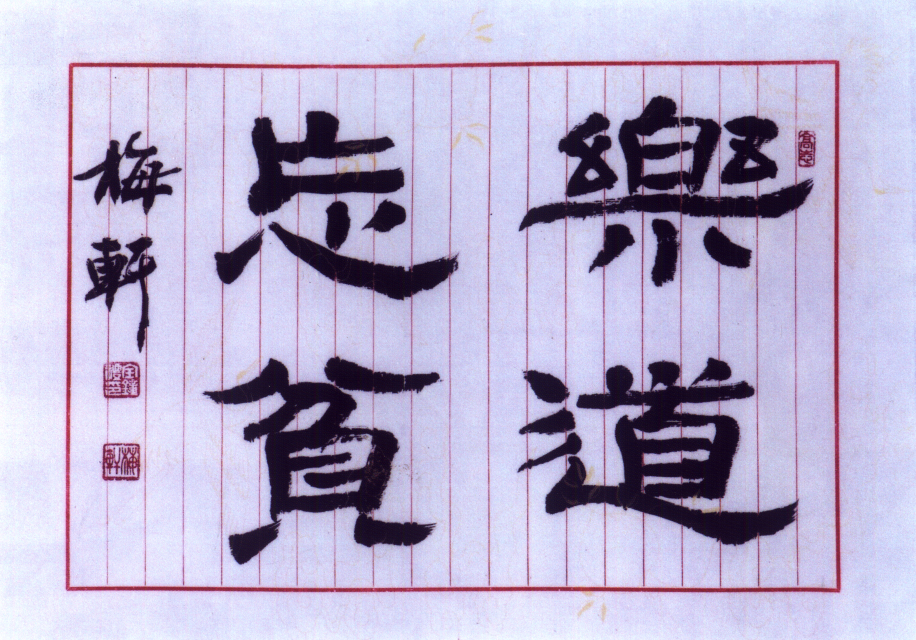 樂道
忘貧
梅軒